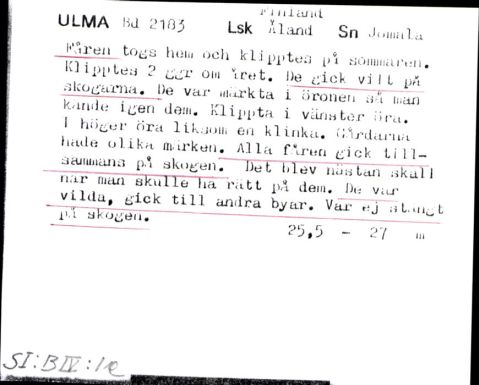 Finland
ULMA Bd 2183 Lsk Åland Sn Jomala
Fåren togs hem och klipptes på sommaren.
Klipptes 2 ggr om året. De gick vilt på
skogarna. De var märkta i öronen så man
kände igen dem. Klippta i vänster öra.
I höger öra liksom en klinka. Gårdarna
hade olika märken. Alla fåren gick till-
sammans på skogen. Det blev nästan skall
när man skulle ha rätt på dem. De var
vilda, gick till andra byar. Var ej stängt
på skogen.
25,5 - 27 m
SI:BIV:1e